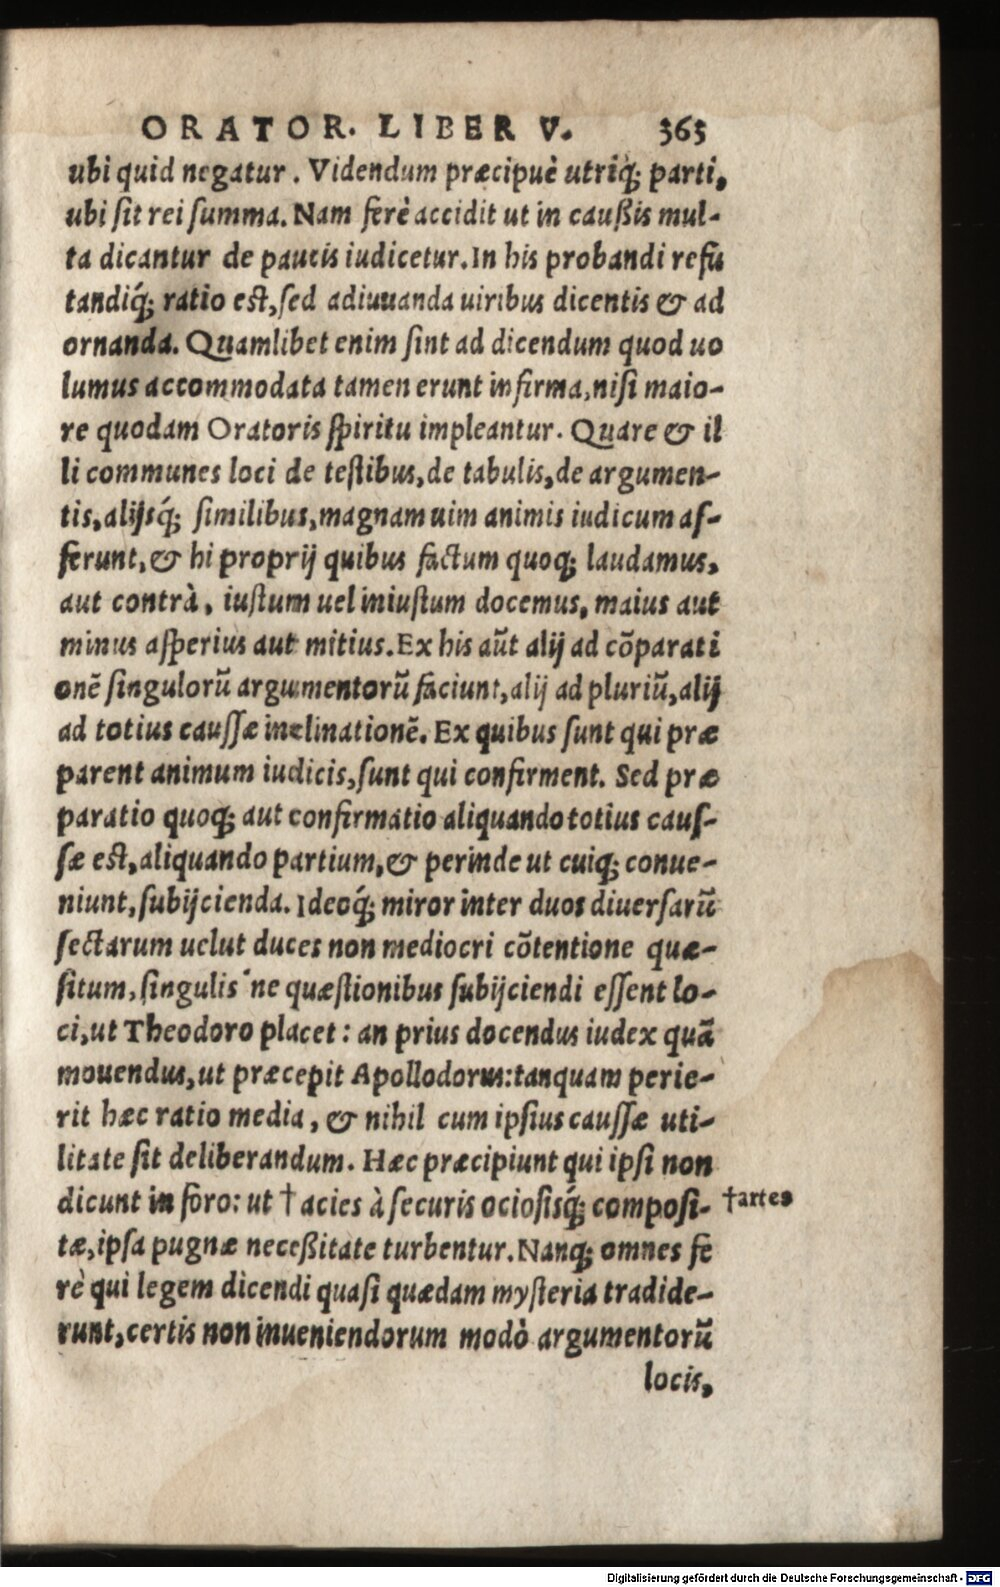 ORATOR. LIBER V. 365
ubi quid negatur. Videndum præcipuè utriq; parti,
ubi sit rei summa. Nam ferè accidit ut in caußis mul-
ta dicantur de paucis iudicetur. In his probandi refu
tandiq́; ratio est, sed adiuuanda uiribus dicentis & ad
ornanda. Quamlibet enim sint ad dicendum quod uo
lumus accommodata tamen erunt infirma, nisi maio-
re quodam Oratoris spiritu impleantur. Quare & il
li communes loci de testibus, de tabulis, de argumen-
tis, alijsq́; similibus, magnam uim animis iudicum af-
ferunt, & hi proprij quibus factum quoq; laudamus,
aut contrà, iustum uel iniustum docemus, maius aut
minus asperius aut mitius. Ex his aũt alij ad cõparati
onẽ singulorũ argumentorũ faciunt, alij ad pluriũ, alij
ad totius caussæ inclinationẽ. Ex quibus sunt qui præ
parent animum iudicis, sunt qui confirment. Sed præ
paratio quoq; aut confirmatio aliquando totius caus-
sæ est, aliquando partium, & perinde ut cuiq; conue-
niunt, subijcienda. Ideoq́; miror inter duos diuersarũ
sectarum uelut duces non mediocri cõtentione quæ-
situm, singulis´ne quæstionibus subijciendi essent lo-
ci, ut Theodoro placet: an prius docendus iudex quã
mouendus, ut præcepit Apollodorus: tanquam perie-
rit hæc ratio media, & nihil cum ipsius caussæ uti-
litate sit deliberandum. Hæc præcipiunt qui ipsi non
dicunt in foro: ut † acies à securis ociosisq́; composi- †artes
tæ, ipsa pugnæ neceßitate turbentur. Nanq; omnes fe
rè qui legem dicendi quasi quædam mysteria tradide-
runt, certis non inueniendorum modò argumentorũ
locis,
Digitalisierung gefördert durch die Deutsche Forschungsgemeinschaft - DFG